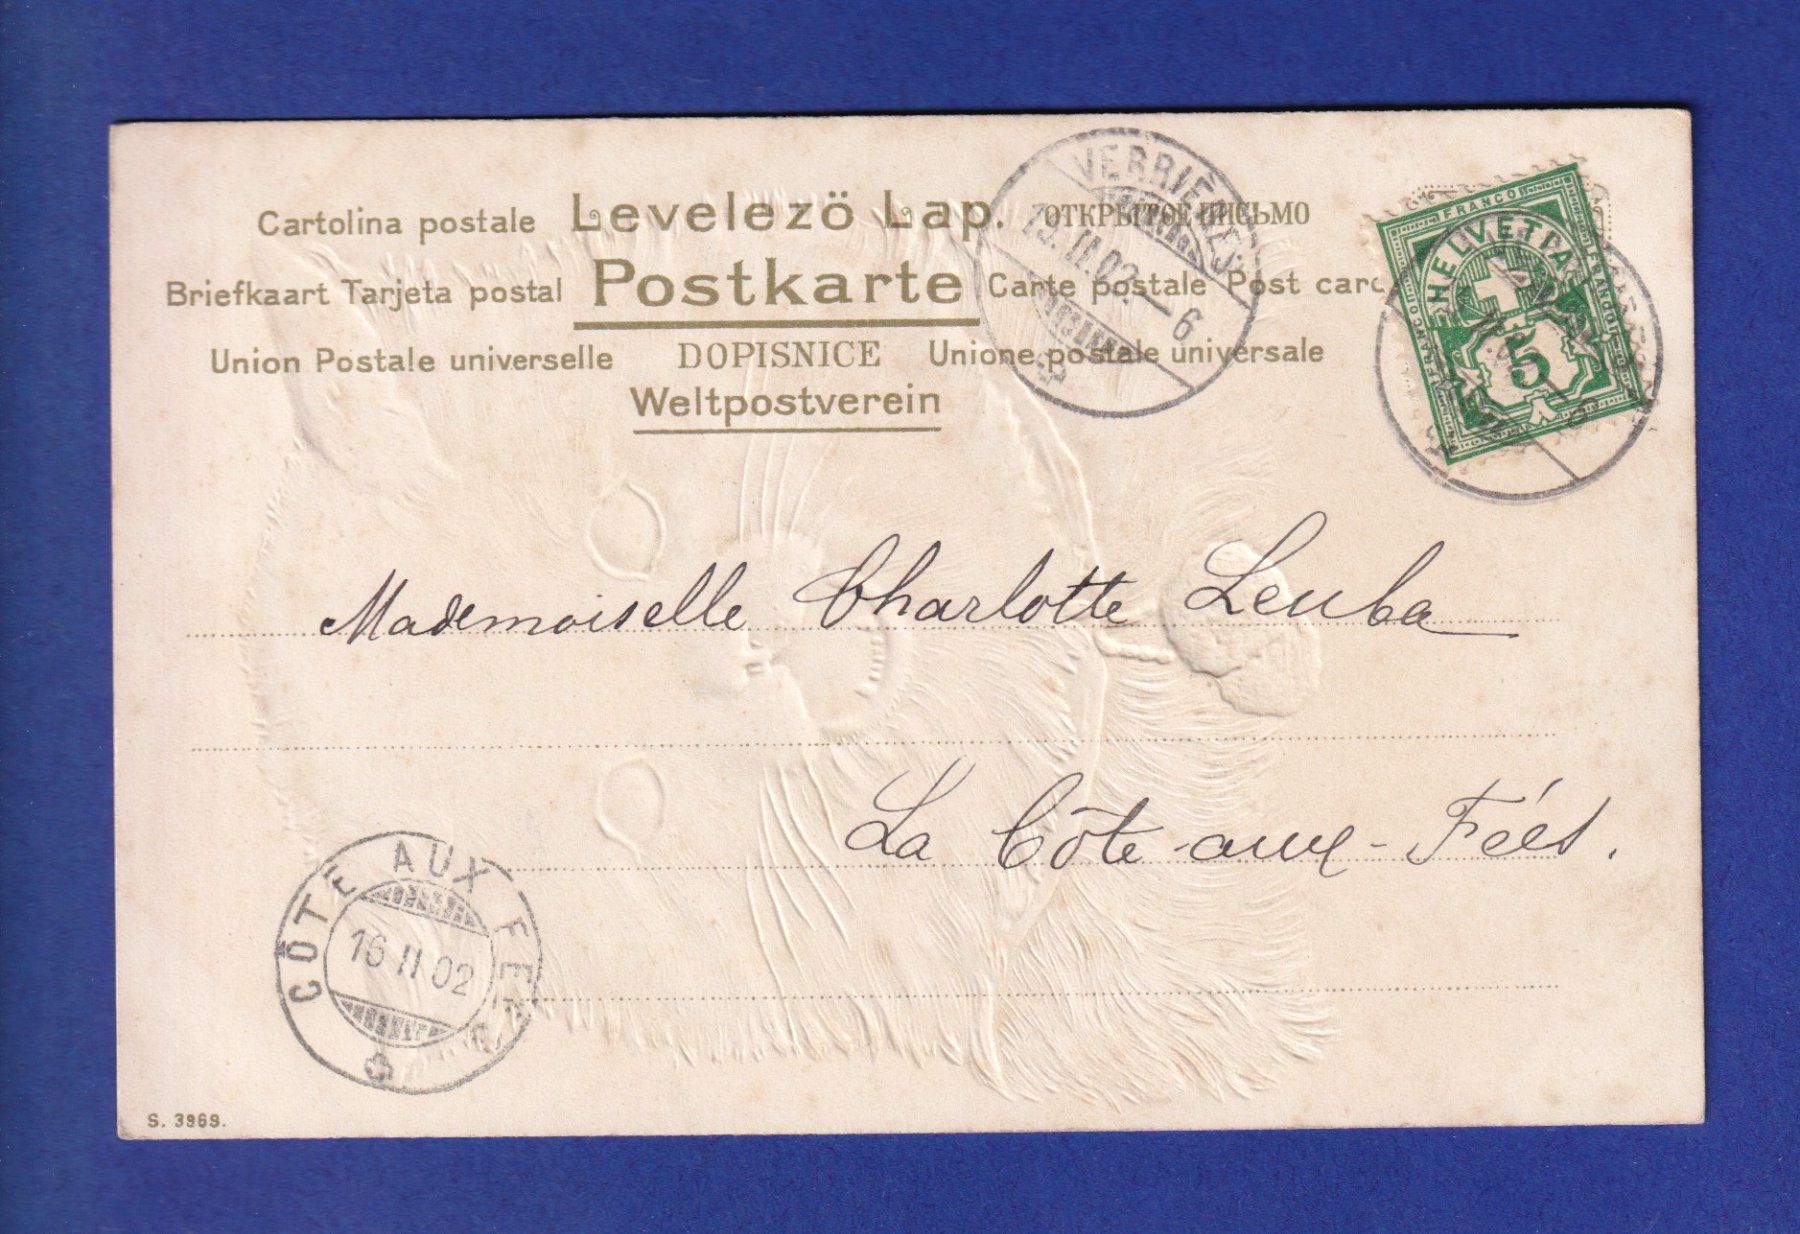 Cartolina postale Levelezö Lap. ОТКРЫТОЕ ПИСЬМО
Briefkaart Tarjeta postal Postkarte Carte postale Post card
Union Postale universelle DOPISNICE Unione postale universale
Weltpostverein
VERRIÈRES
II.02.–6
FRANCO
HELVETIA
FRANCO
FRANCO
5
Mademoiselle Charlotte Leuba
La Côte-aux-Fées.
CÔTE AUX FÉES
16 II 02
S. 3969.